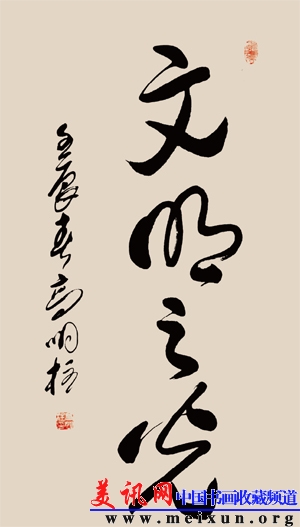 文明之光
壬辰春高明柱
美讯网
中国书画收藏频道
www.meixun.org